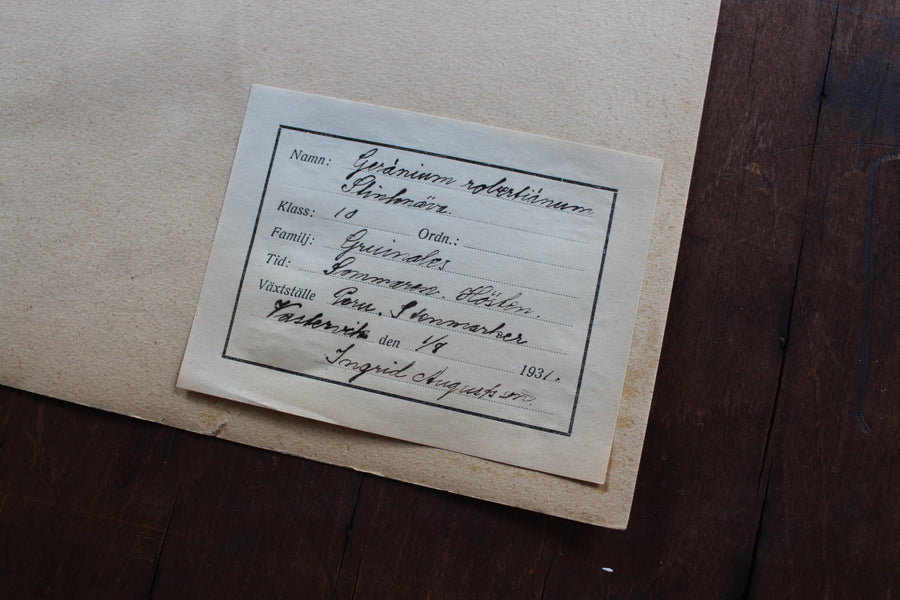 Namn: Geránium robertiánum
Stinknäva.
Klass: 10 Ordn.:
Familj: Gruinales
Tid: Sommaren. Hösten.
Växtställe Stenmarker
Västervik den 1/8 1931.
Ingrid Augustsson